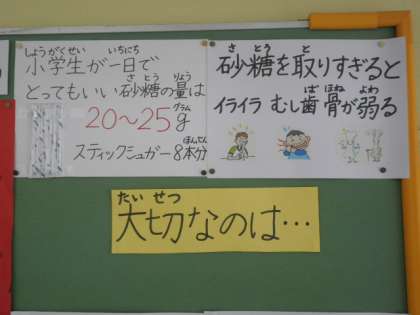 しょうがくせい いちにち
小学生が一日で
さとう りょう
とってもいい砂糖の量は
グラム
20〜25g
ほんぶん
スティックシュガー8本分
さ とう と
砂糖を取りすぎると
ば ほね よわ
イライラ むし歯 骨が弱る
たい せつ
大切なのは…